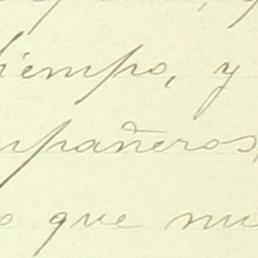 tiempo, y
mpañeros,
o que nu